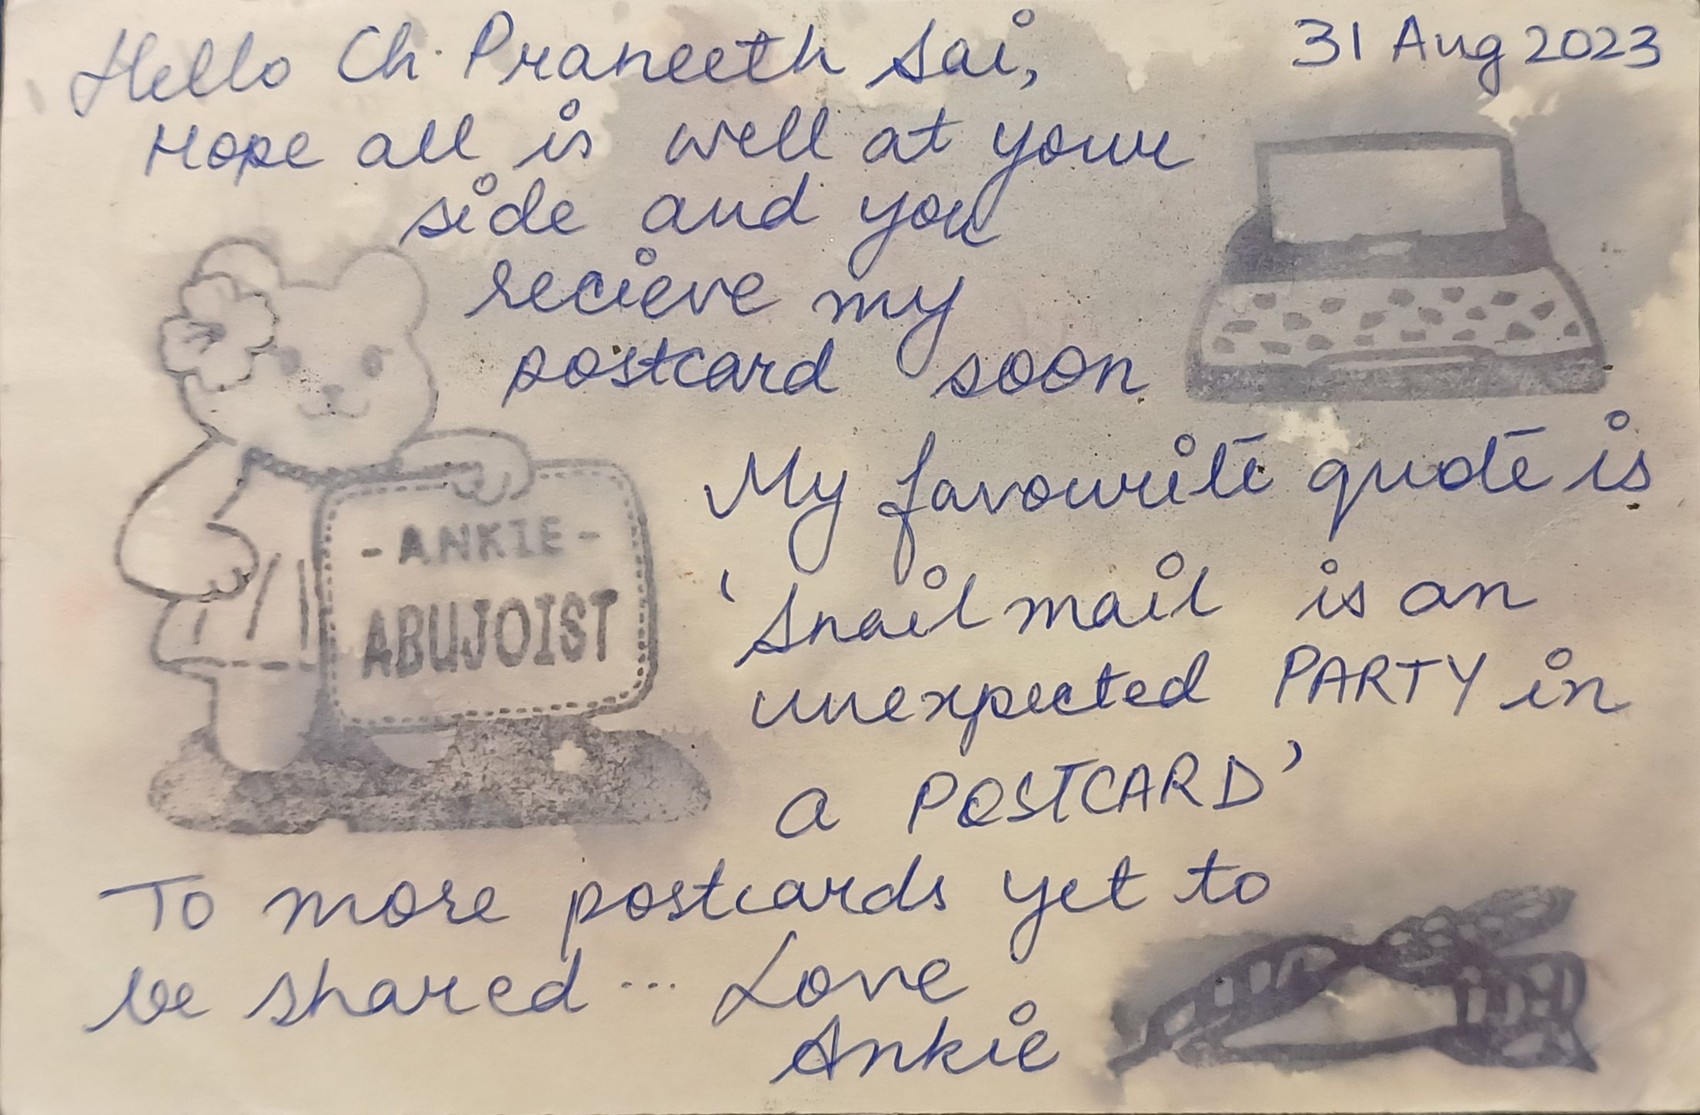 Hello Ch. Praneeth Sai,
31 Aug 2023
Hope all is well at your
side and you
recieve my
postcard soon
- ANKIE -
ABUJOIST
My favourite quote is
'Snail mail is an
unexpected PARTY in
a POSTCARD'
To more postcards yet to
be shared... Love
Ankie